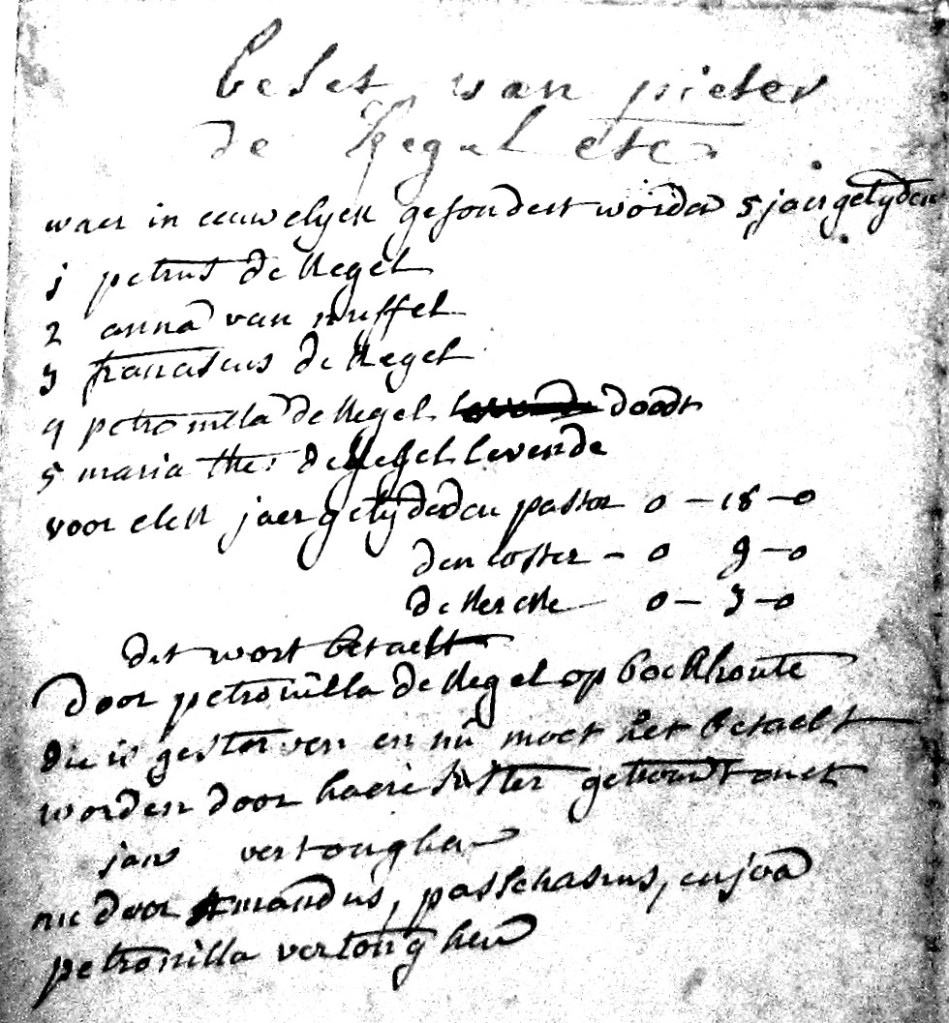 beset van pieter
de Kegel etc
waer in eeuwelyck gefondert worden 5 jaergetyden
1 petrus de Kegel
2 anna van nuffel
3 franciscus de Kegel
4 petronilla de Kegel doodt
5 maria ther de Kegel levende
voor elck jaergetyde den pastor 0 - 18 - 0
den coster - 0 9 - 0
de kercke 0 - 3 - 0
dit wort betaelt
Door petronilla de Kegel op bockhoute
die is gestorven en nu moet het betaelt
worden door haere suster getrouwt met
jan vertonghen
nu door Amandus, passchasius, en joa
petronilla vertonghen